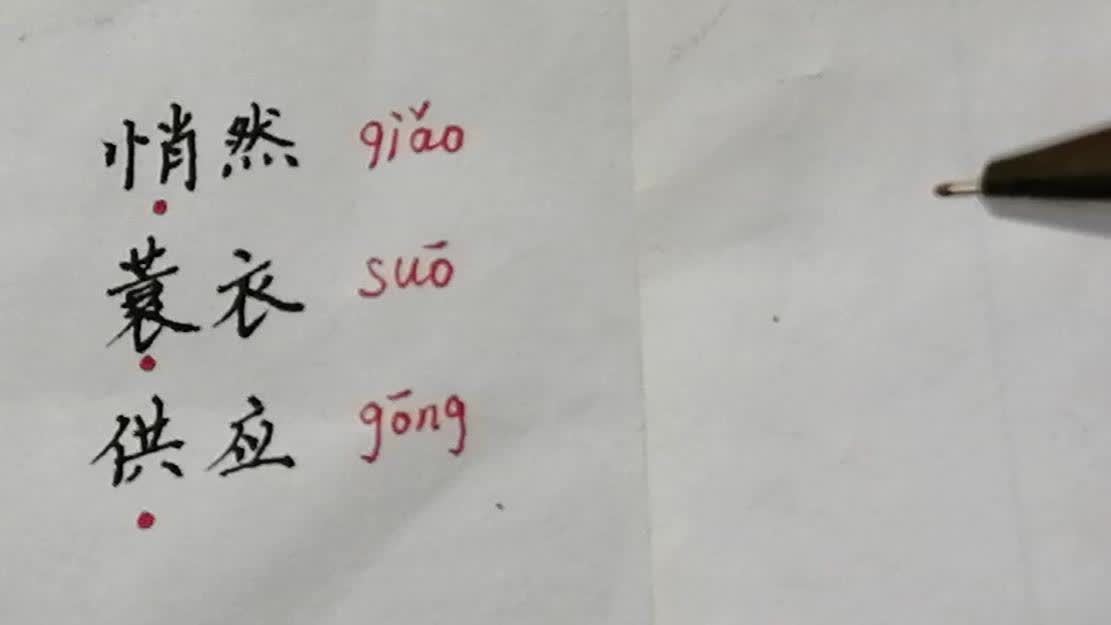 悄然 qiǎo
蓑衣 suō
供应 gōng